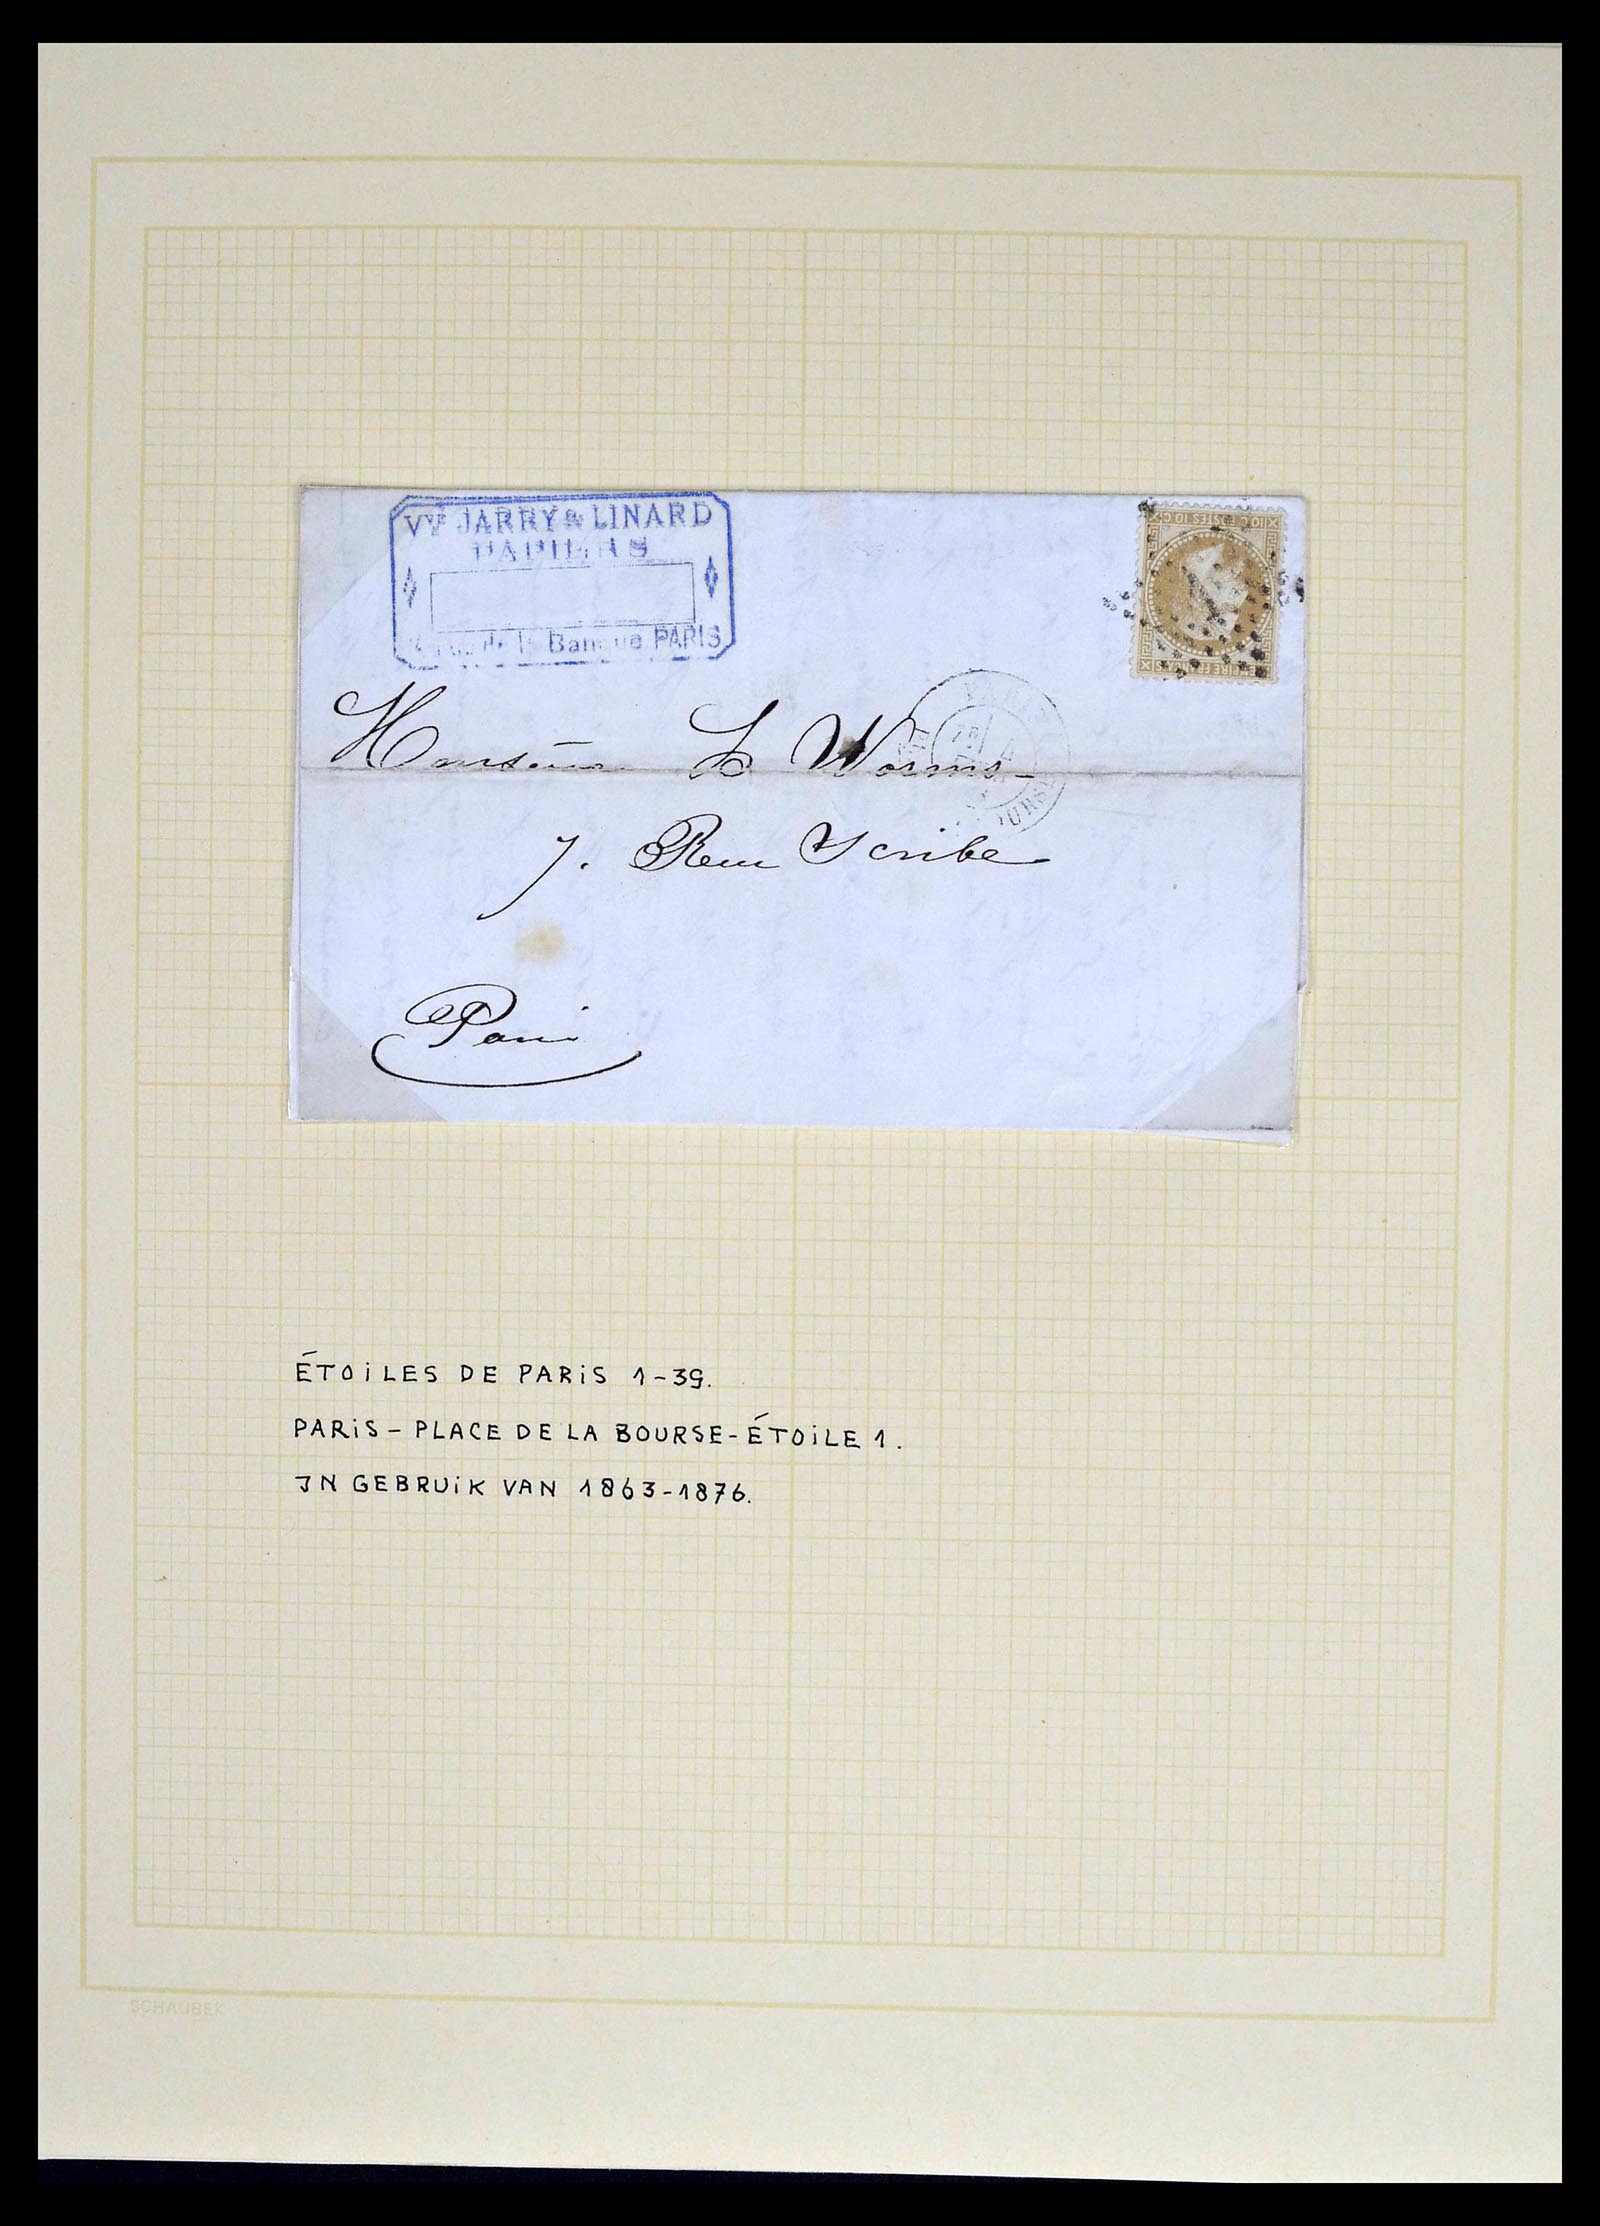 Vve JARRY & LINARD
PAPIERS
Rue de la Banque PARIS
10 C. POSTES 10 C.
EMPIRE FRANÇAIS
Monsieur L Worms
7. Rue Scribe
Paris
ÉTOiLES DE PARiS 1-39.
PARiS - PLACE DE LA BOURSE - ÉTOiLE 1.
IN GEBRUiK VAN 1863-1876.
SCHAUBEK